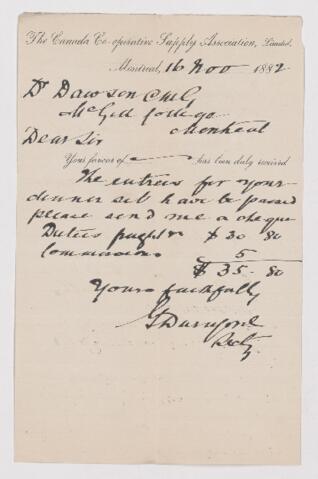 The Canada Co-operative Supply Association, Limited.
Montreal, 16 Nov 1882
Dr Dawson CMG
McGill College
Montreal
Dear Sir
Your favor of has been duly received
The entries for your
dinner set have be passed
please send me a cheque
Duties freight $ 30 80
Commission 5
$ 35 - 80
Yours faithfully
Secty